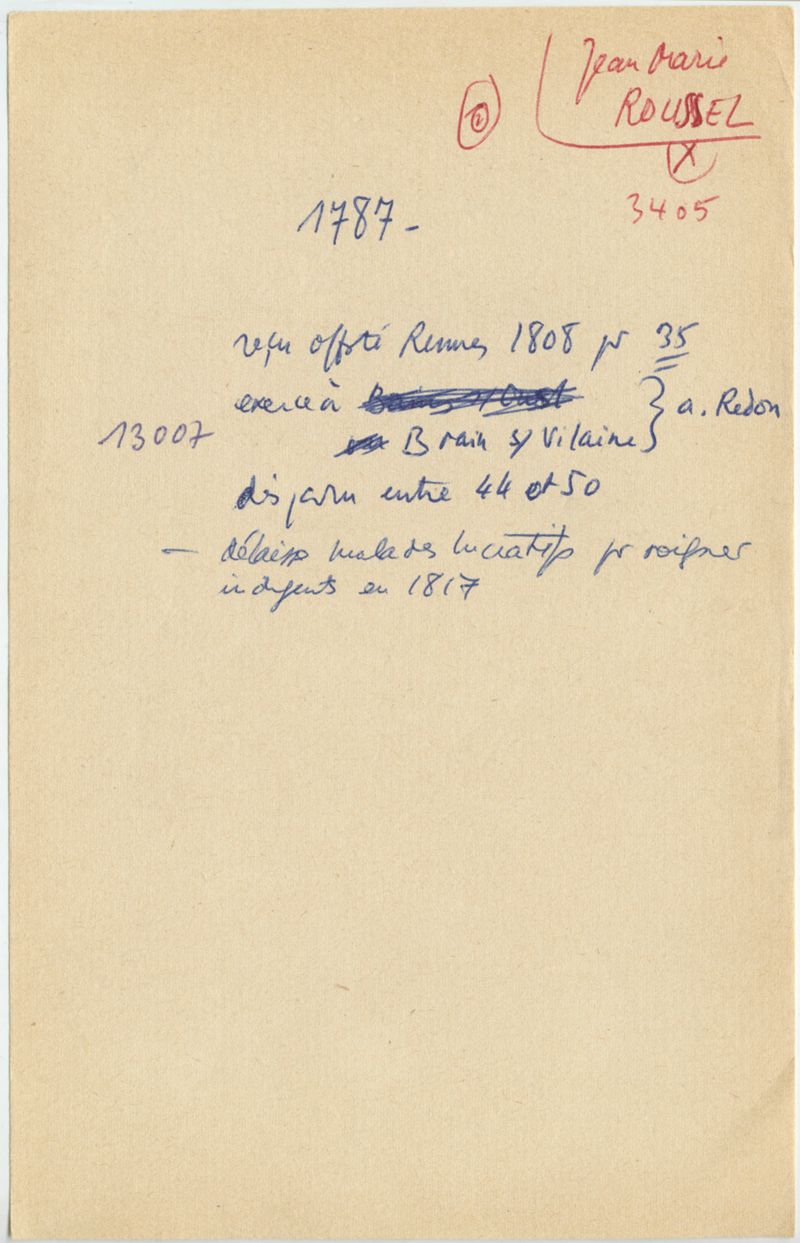 Jean Marie
ROUSSEL
X
3405
1787 -
reçu offté Rennes 1808 pr 35
exerce à Bains s/ Oust
13007
Brain s/ Vilaine } a. Redon
disparu entre 44 et 50
— délaisse malades lucratifs pr soigner
indigents en 1817